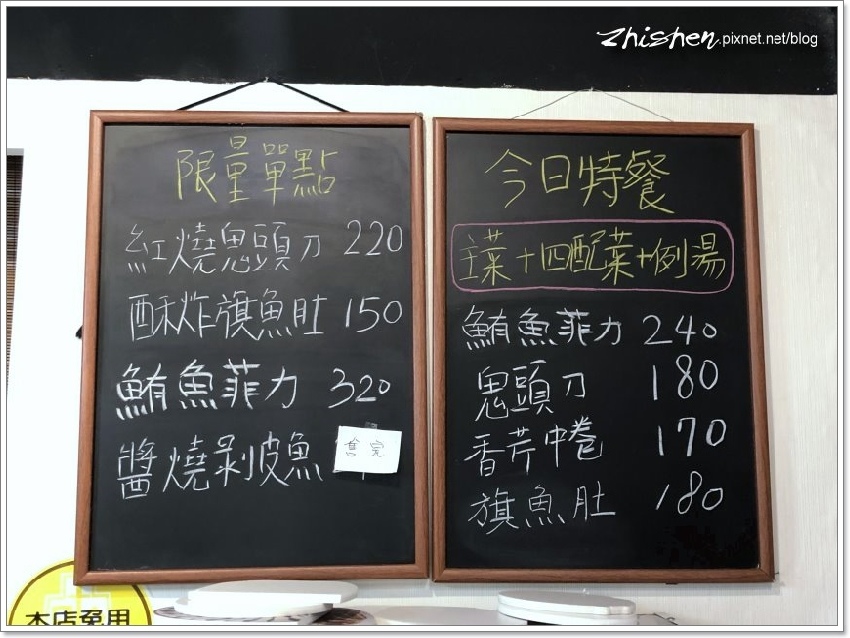 Zhishen.pixnet.net/blog
限量單點
紅燒鬼頭刀 220
酥炸旗魚肚 150
鮪魚菲力 320
醬燒剝皮魚
售完
今日特餐
主菜+四配菜+例湯
鮪魚菲力 240
鬼頭刀 180
香芹中卷 170
旗魚肚 180
本店免用